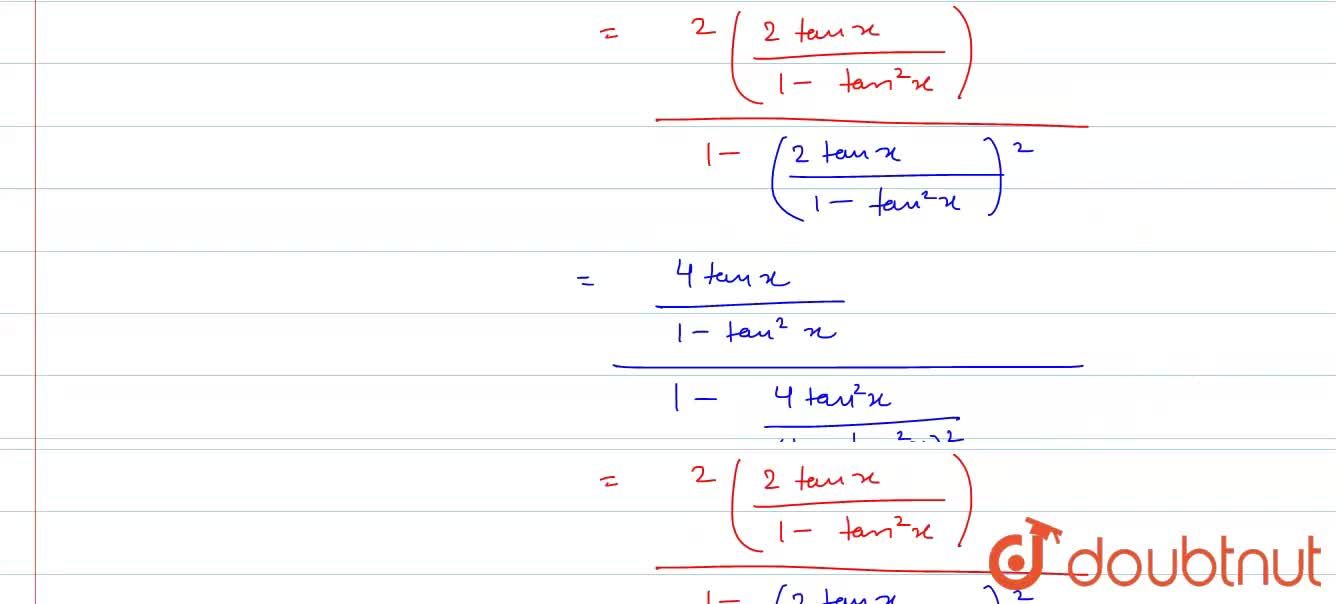 = 2 ( 2 tan x
1 - tan²x )
1 - ( 2 tan x
1 - tan²x ) 2
= 4 tan x
1 - tan² x
1 - 4 tan²x
= 2 ( 2 tan x
1 - tan²x )
1 - ( 2 tan x ) 2
doubtnut